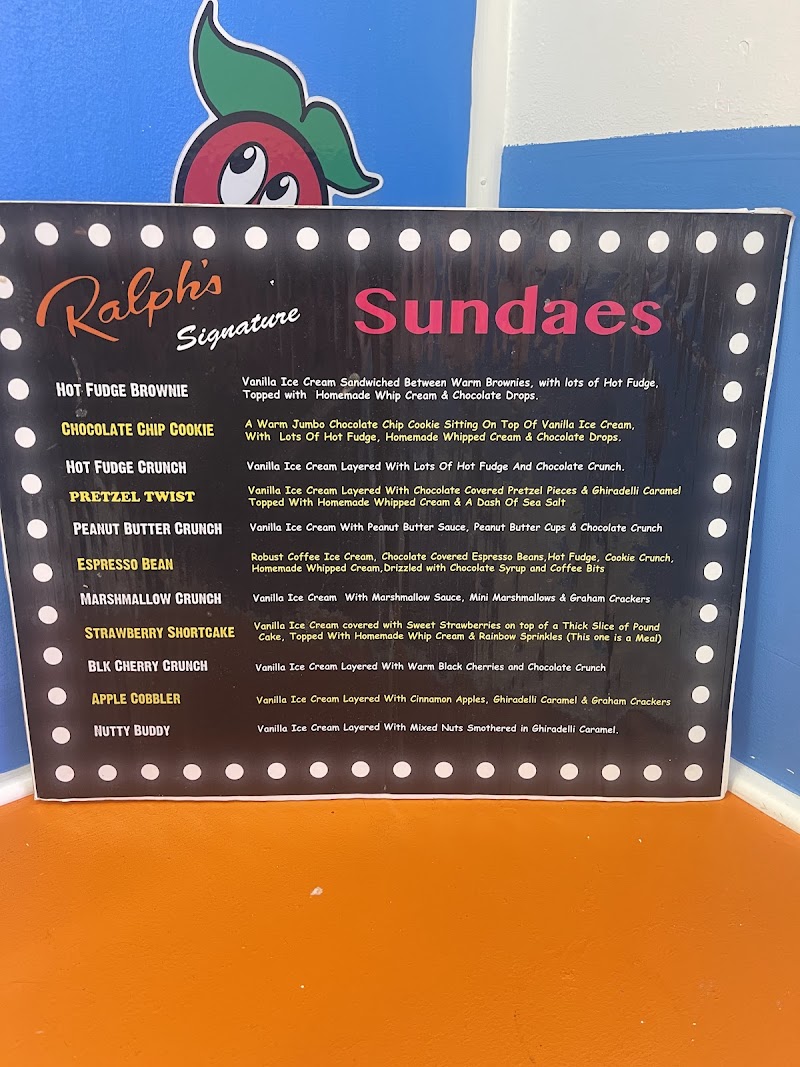 Ralph's
Signature
Sundaes
HOT FUDGE BROWNIE
Vanilla Ice Cream Sandwiched Between Warm Brownies, with lots of Hot Fudge,
Topped with Homemade Whip Cream & Chocolate Drops.
CHOCOLATE CHIP COOKIE
A Warm Jumbo Chocolate Chip Cookie Sitting On Top Of Vanilla Ice Cream,
With Lots Of Hot Fudge, Homemade Whipped Cream & Chocolate Drops.
HOT FUDGE CRUNCH
Vanilla Ice Cream Layered With Lots Of Hot Fudge And Chocolate Crunch.
PRETZEL TWIST
Vanilla Ice Cream Layered With Chocolate Covered Pretzel Pieces & Ghiradelli Caramel
Topped With Homemade Whipped Cream & A Dash Of Sea Salt
PEANUT BUTTER CRUNCH
Vanilla Ice Cream With Peanut Butter Sauce, Peanut Butter Cups & Chocolate Crunch
ESPRESSO BEAN
Robust Coffee Ice Cream, Chocolate Covered Espresso Beans,Hot Fudge, Cookie Crunch,
Homemade Whipped Cream,Drizzled with Chocolate Syrup and Coffee Bits
MARSHMALLOW CRUNCH
Vanilla Ice Cream With Marshmallow Sauce, Mini Marshmallows & Graham Crackers
STRAWBERRY SHORTCAKE
Vanilla Ice Cream covered with Sweet Strawberries on top of a Thick Slice of Pound
Cake, Topped With Homemade Whip Cream & Rainbow Sprinkles (This one is a Meal)
BLK CHERRY CRUNCH
Vanilla Ice Cream Layered With Warm Black Cherries and Chocolate Crunch
APPLE COBBLER
Vanilla Ice Cream Layered With Cinnamon Apples, Ghiradelli Caramel & Graham Crackers
NUTTY BUDDY
Vanilla Ice Cream Layered With Mixed Nuts Smothered in Ghiradelli Caramel.